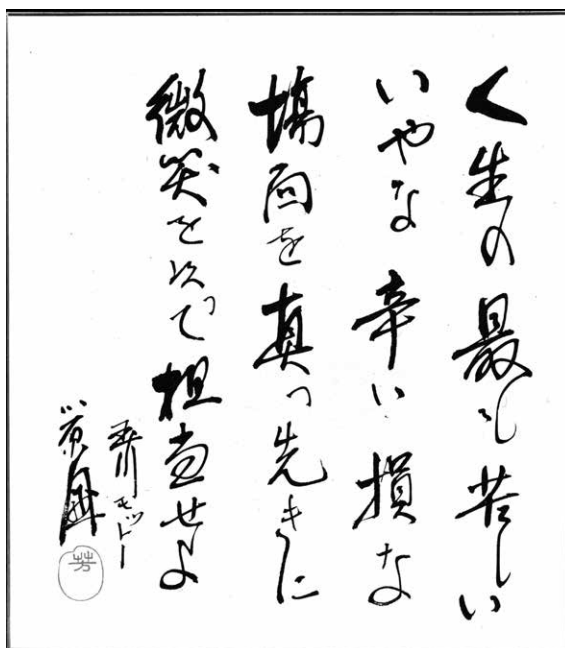 人生の最も苦しい
いやな辛い損な
場面を真っ先きに
微笑を以て担当せよ
玉川モットー
小原國芳
芳